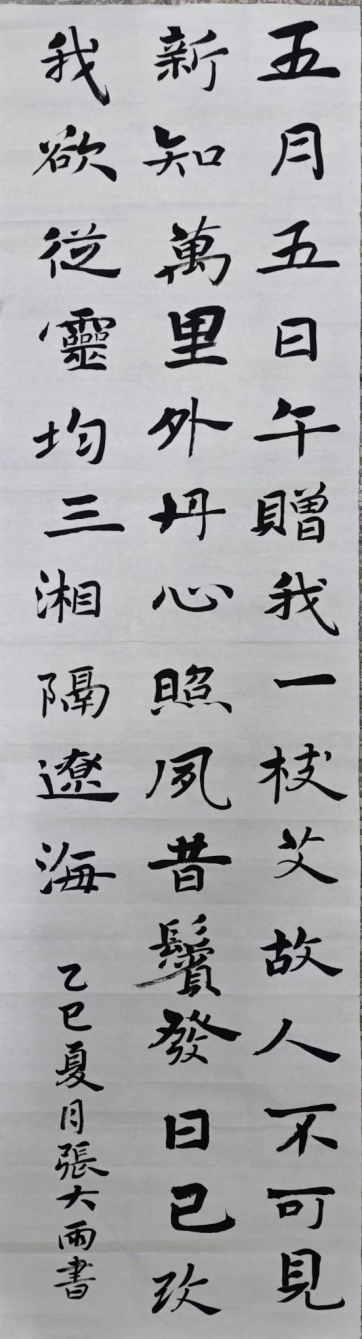 五月五日午贈我一枝艾故人不可見
新知萬里外丹心照夙昔鬢發日已改
我欲從靈均三湘隔遼海
乙巳夏月張大雨書